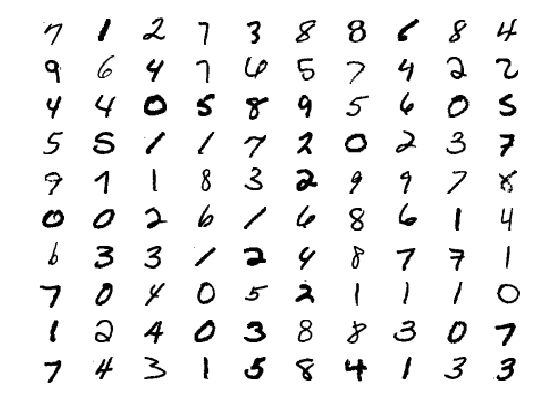 7 1 2 7 3 8 8 6 8 4
9 6 4 7 6 5 7 4 2 2
4 4 0 5 8 9 5 6 0 5
5 5 1 1 7 2 0 2 3 7
9 7 1 8 3 2 9 9 7 8
0 0 2 6 1 6 8 6 1 4
6 3 3 1 2 4 8 7 7 1
7 0 4 0 5 2 1 1 1 0
1 2 4 0 3 8 8 3 0 7
7 4 3 1 5 8 4 1 3 3